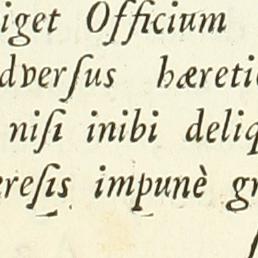 iget Officium
dverſus hæretic
niſi inibi deliq
ereſis impunè gr